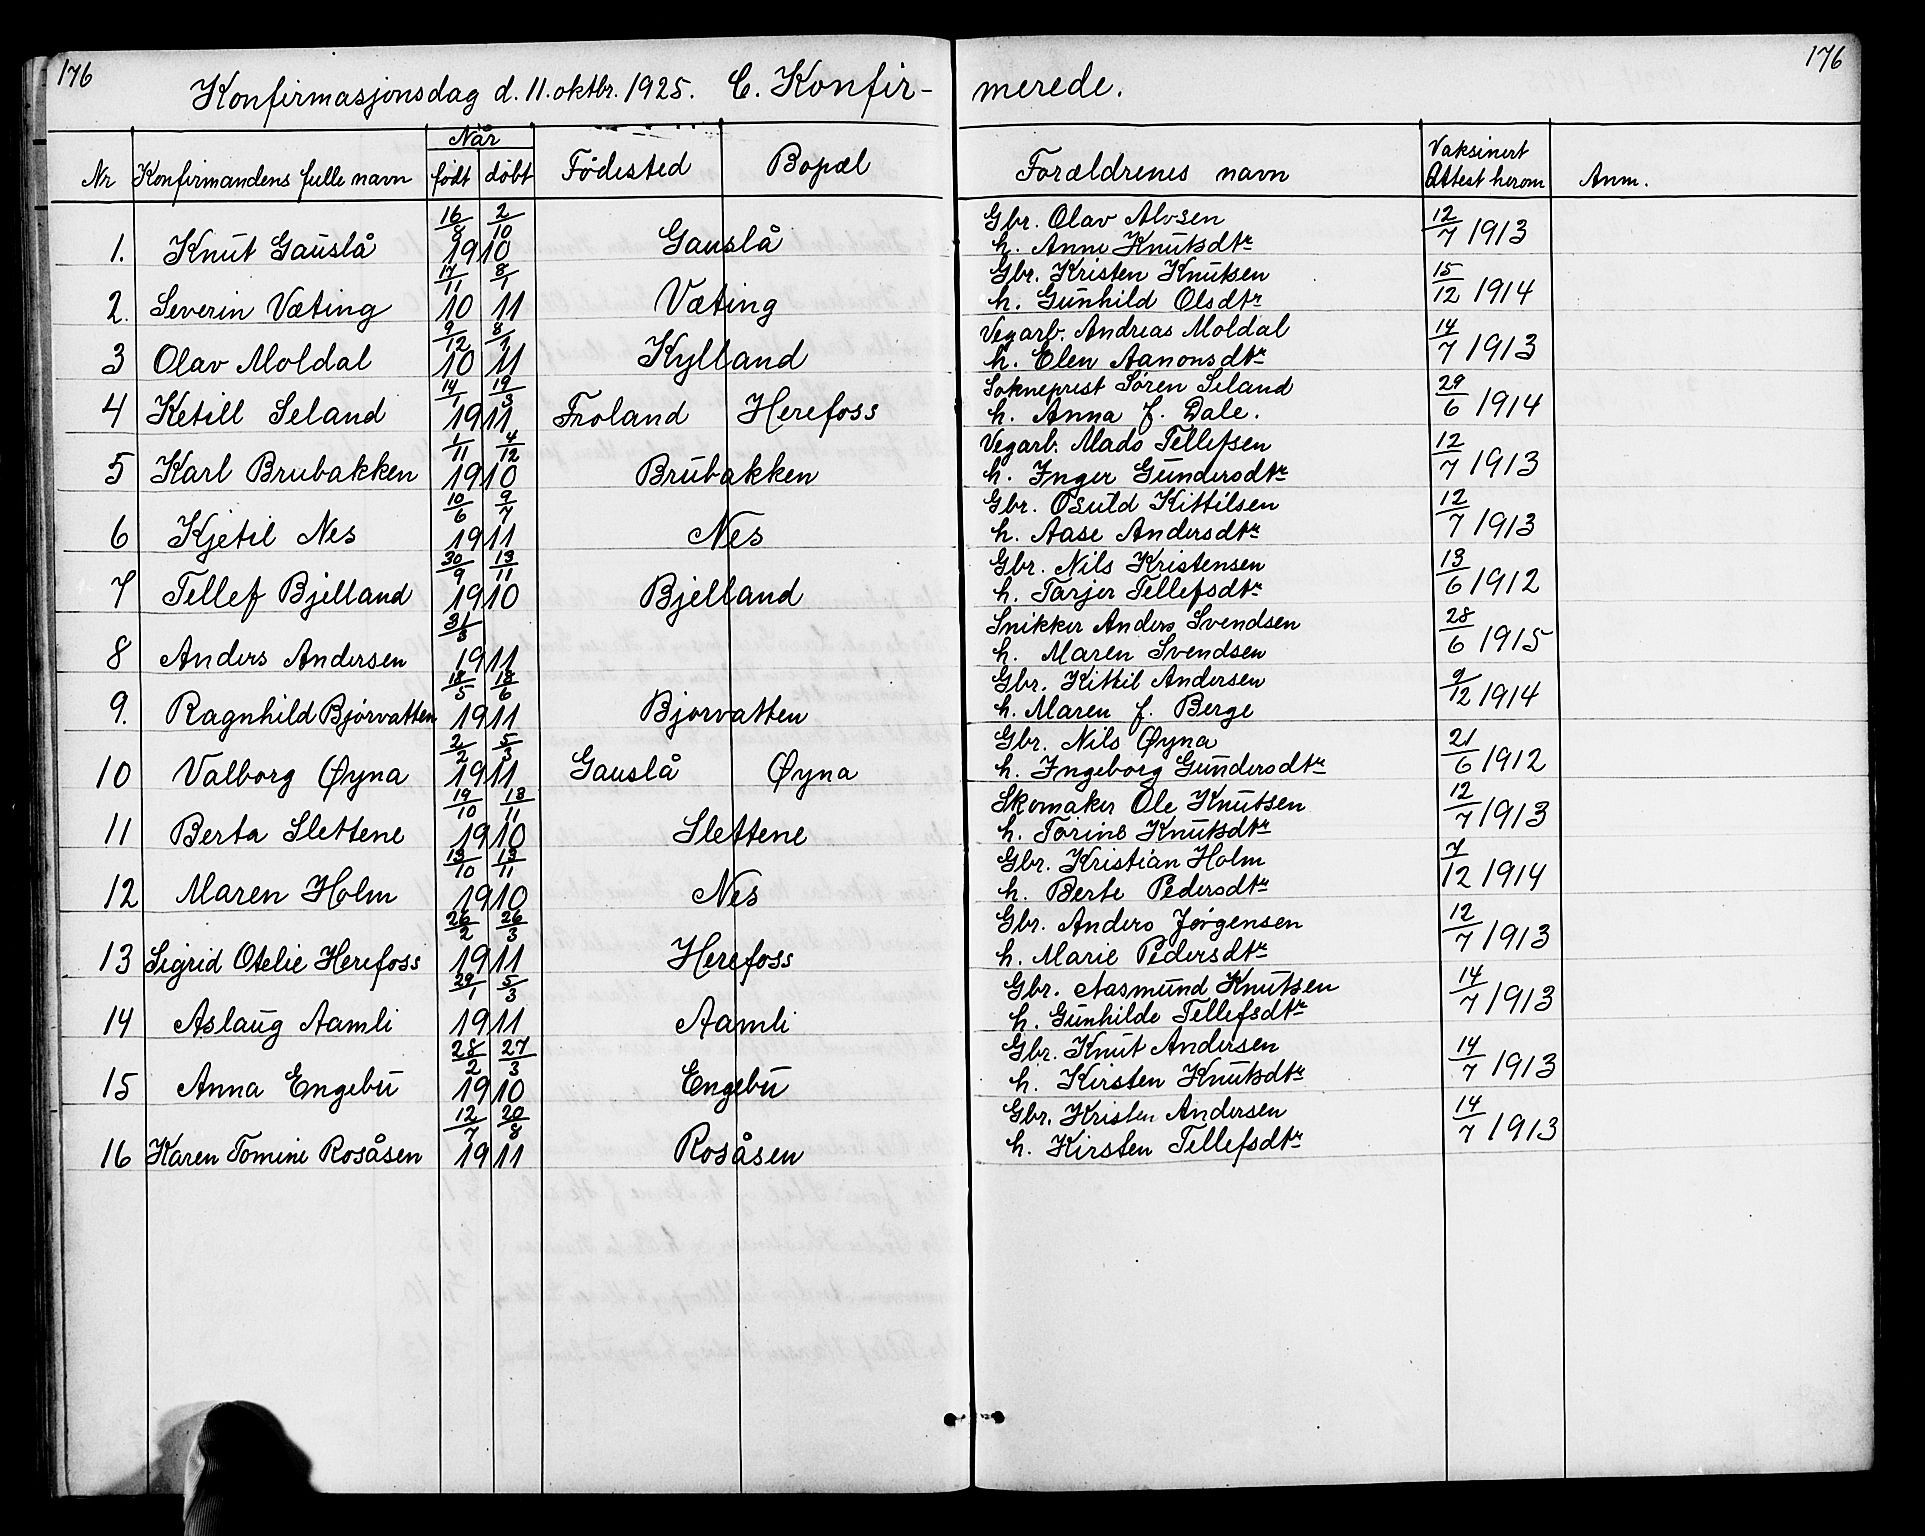 176 176
Konfirmasjonsdag d. 11. oktbr. 1925. C. Konfir- merede.
Nr Konfirmandens fulle navn Når født døbt Fødested Bopæl Forældrenes navn Vaksinert Attest herom Anm.
16/8 2/10 Gbr. Olav Alvsen 12/7 1913
1. Knut Gauslå 1910 Gauslå h. Anne Knutsdtr
17/11 8/1 Gbr. Kristen Knutsen 15/12 1914
2. Severin Væting 10 11 Væting h. Gunhild Olsdtr
9/12 8/1 Vegarb. Andreas Moldal 14/7 1913
3 Olav Moldal 10 11 Kylland h. Elen Aanonsdtr
14/1 19/3 Sokneprest Søren Seland 29/6 1914
4 Ketill Seland 1911 Froland Herefoss h. Anna f. Dale.
1/11 4/12 Vegarb. Mads Tellefsen 12/7 1913
5 Karl Brubakken 1910 Brubakken h. Inger Gundersdtr
10/6 9/7 Gbr. Osuld Kittilsen 12/7 1913
6 Kjetil Nes 1911 Nes h. Aase Andersdtr
30/9 13/11 Gbr. Nils Kristensen 13/6 1912
7 Tellef Bjelland 1910 Bjelland h. Tarjer Tellefsdtr
31/3 Snikker Anders Svendsen 28/6 1915
8 Anders Andersen 1911 h. Maren Svendsen
18/5 18/6 Gbr. Kittil Andersen 9/12 1914
9. Ragnhild Bjørvatten 1911 Bjørvatten h. Maren f. Berge
2/2 5/3 Gbr. Nils Øyna 21/6 1912
10 Valborg Øyna 1911 Gauslå Øyna h. Ingeborg Gundersdtr
19/10 13/11 Skomaker Ole Knutsen 12/7 1913
11 Berta Slettene 1910 Slettene h. Torine Knutsdtr
13/10 13/11 Gbr. Kristian Holm 7/12 1914
12 Maren Holm 1910 Nes h. Berte Pedersdtr
26/2 26/3 Gbr. Anders Jørgensen 12/7 1913
13 Sigrid Otelie Herefoss 1911 Herefoss h. Marie Pedersdtr
29/1 5/3 Gbr. Aasmund Knutsen 14/7 1913
14 Aslaug Aamli 1911 Aamli h. Gunhilde Tellefsdtr
28/2 27/3 Gbr. Knut Andersen 14/7 1913
15 Anna Engebu 1910 Engebu h. Kirsten Knutsdtr
12/7 20/8 Gbr. Kristen Andersen 14/7 1913
16 Karen Tomine Rosåsen 1911 Rosåsen h. Kirsten Tellefsdtr